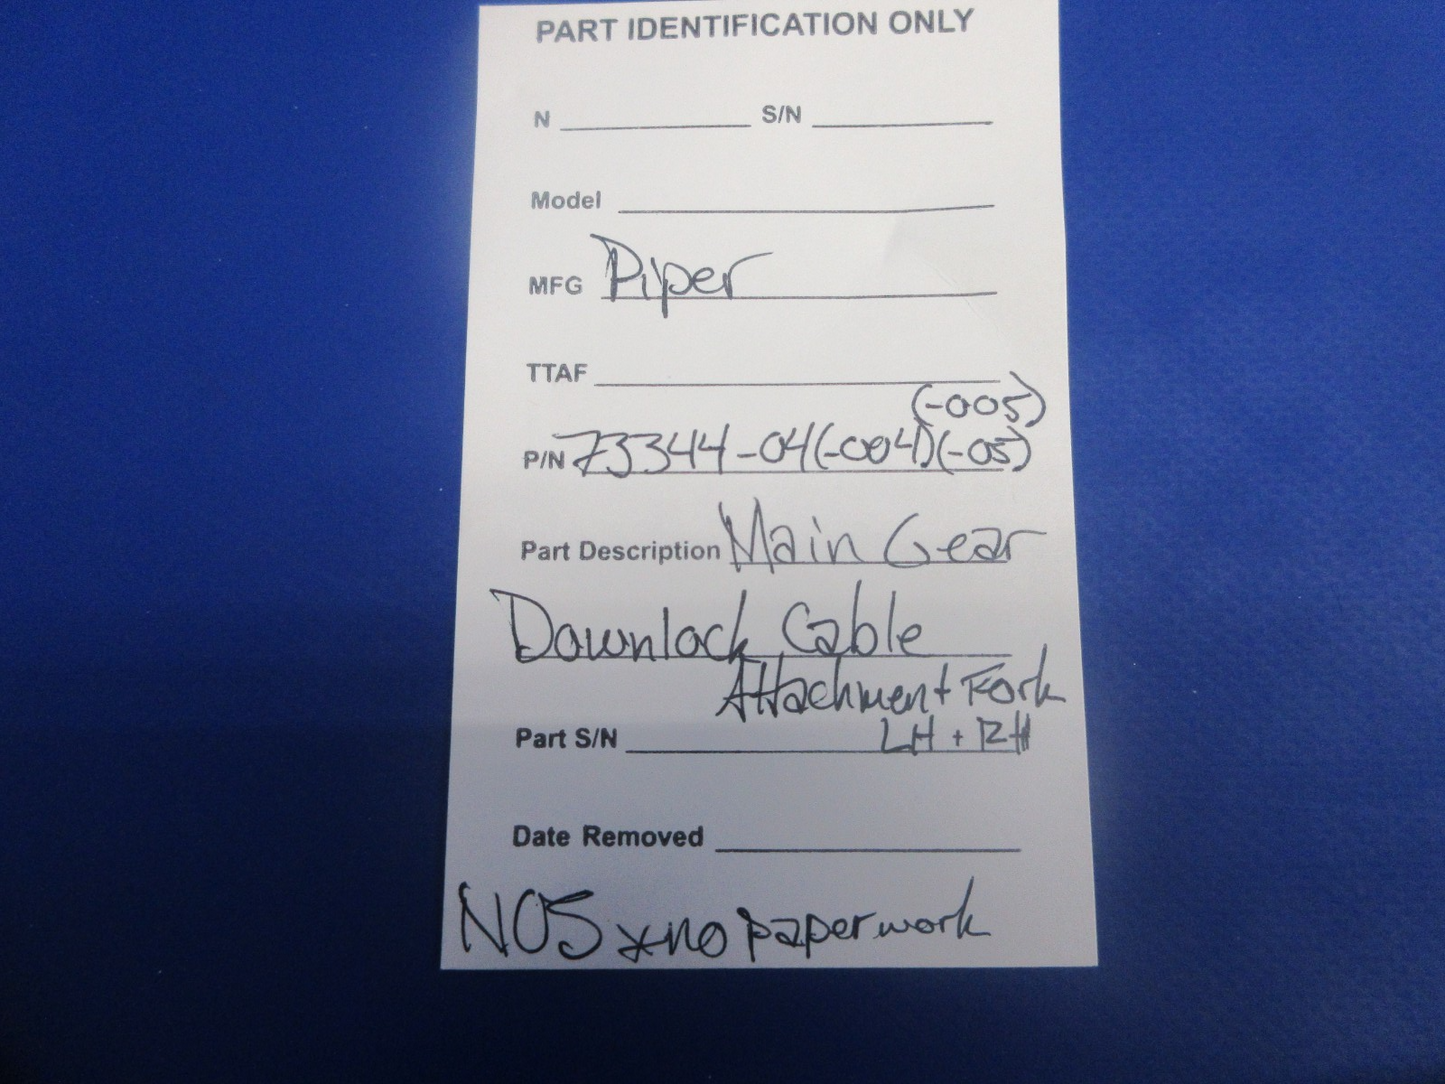 PART IDENTIFICATION ONLY
N S/N
Model
MFG Piper
TTAF
(-005)
P/N 73344-04(-004)(-05)
Part Description Main Gear
Downlock Cable
Attachment Fork
Part S/N LH + RH
Date Removed
NOS *no paperwork